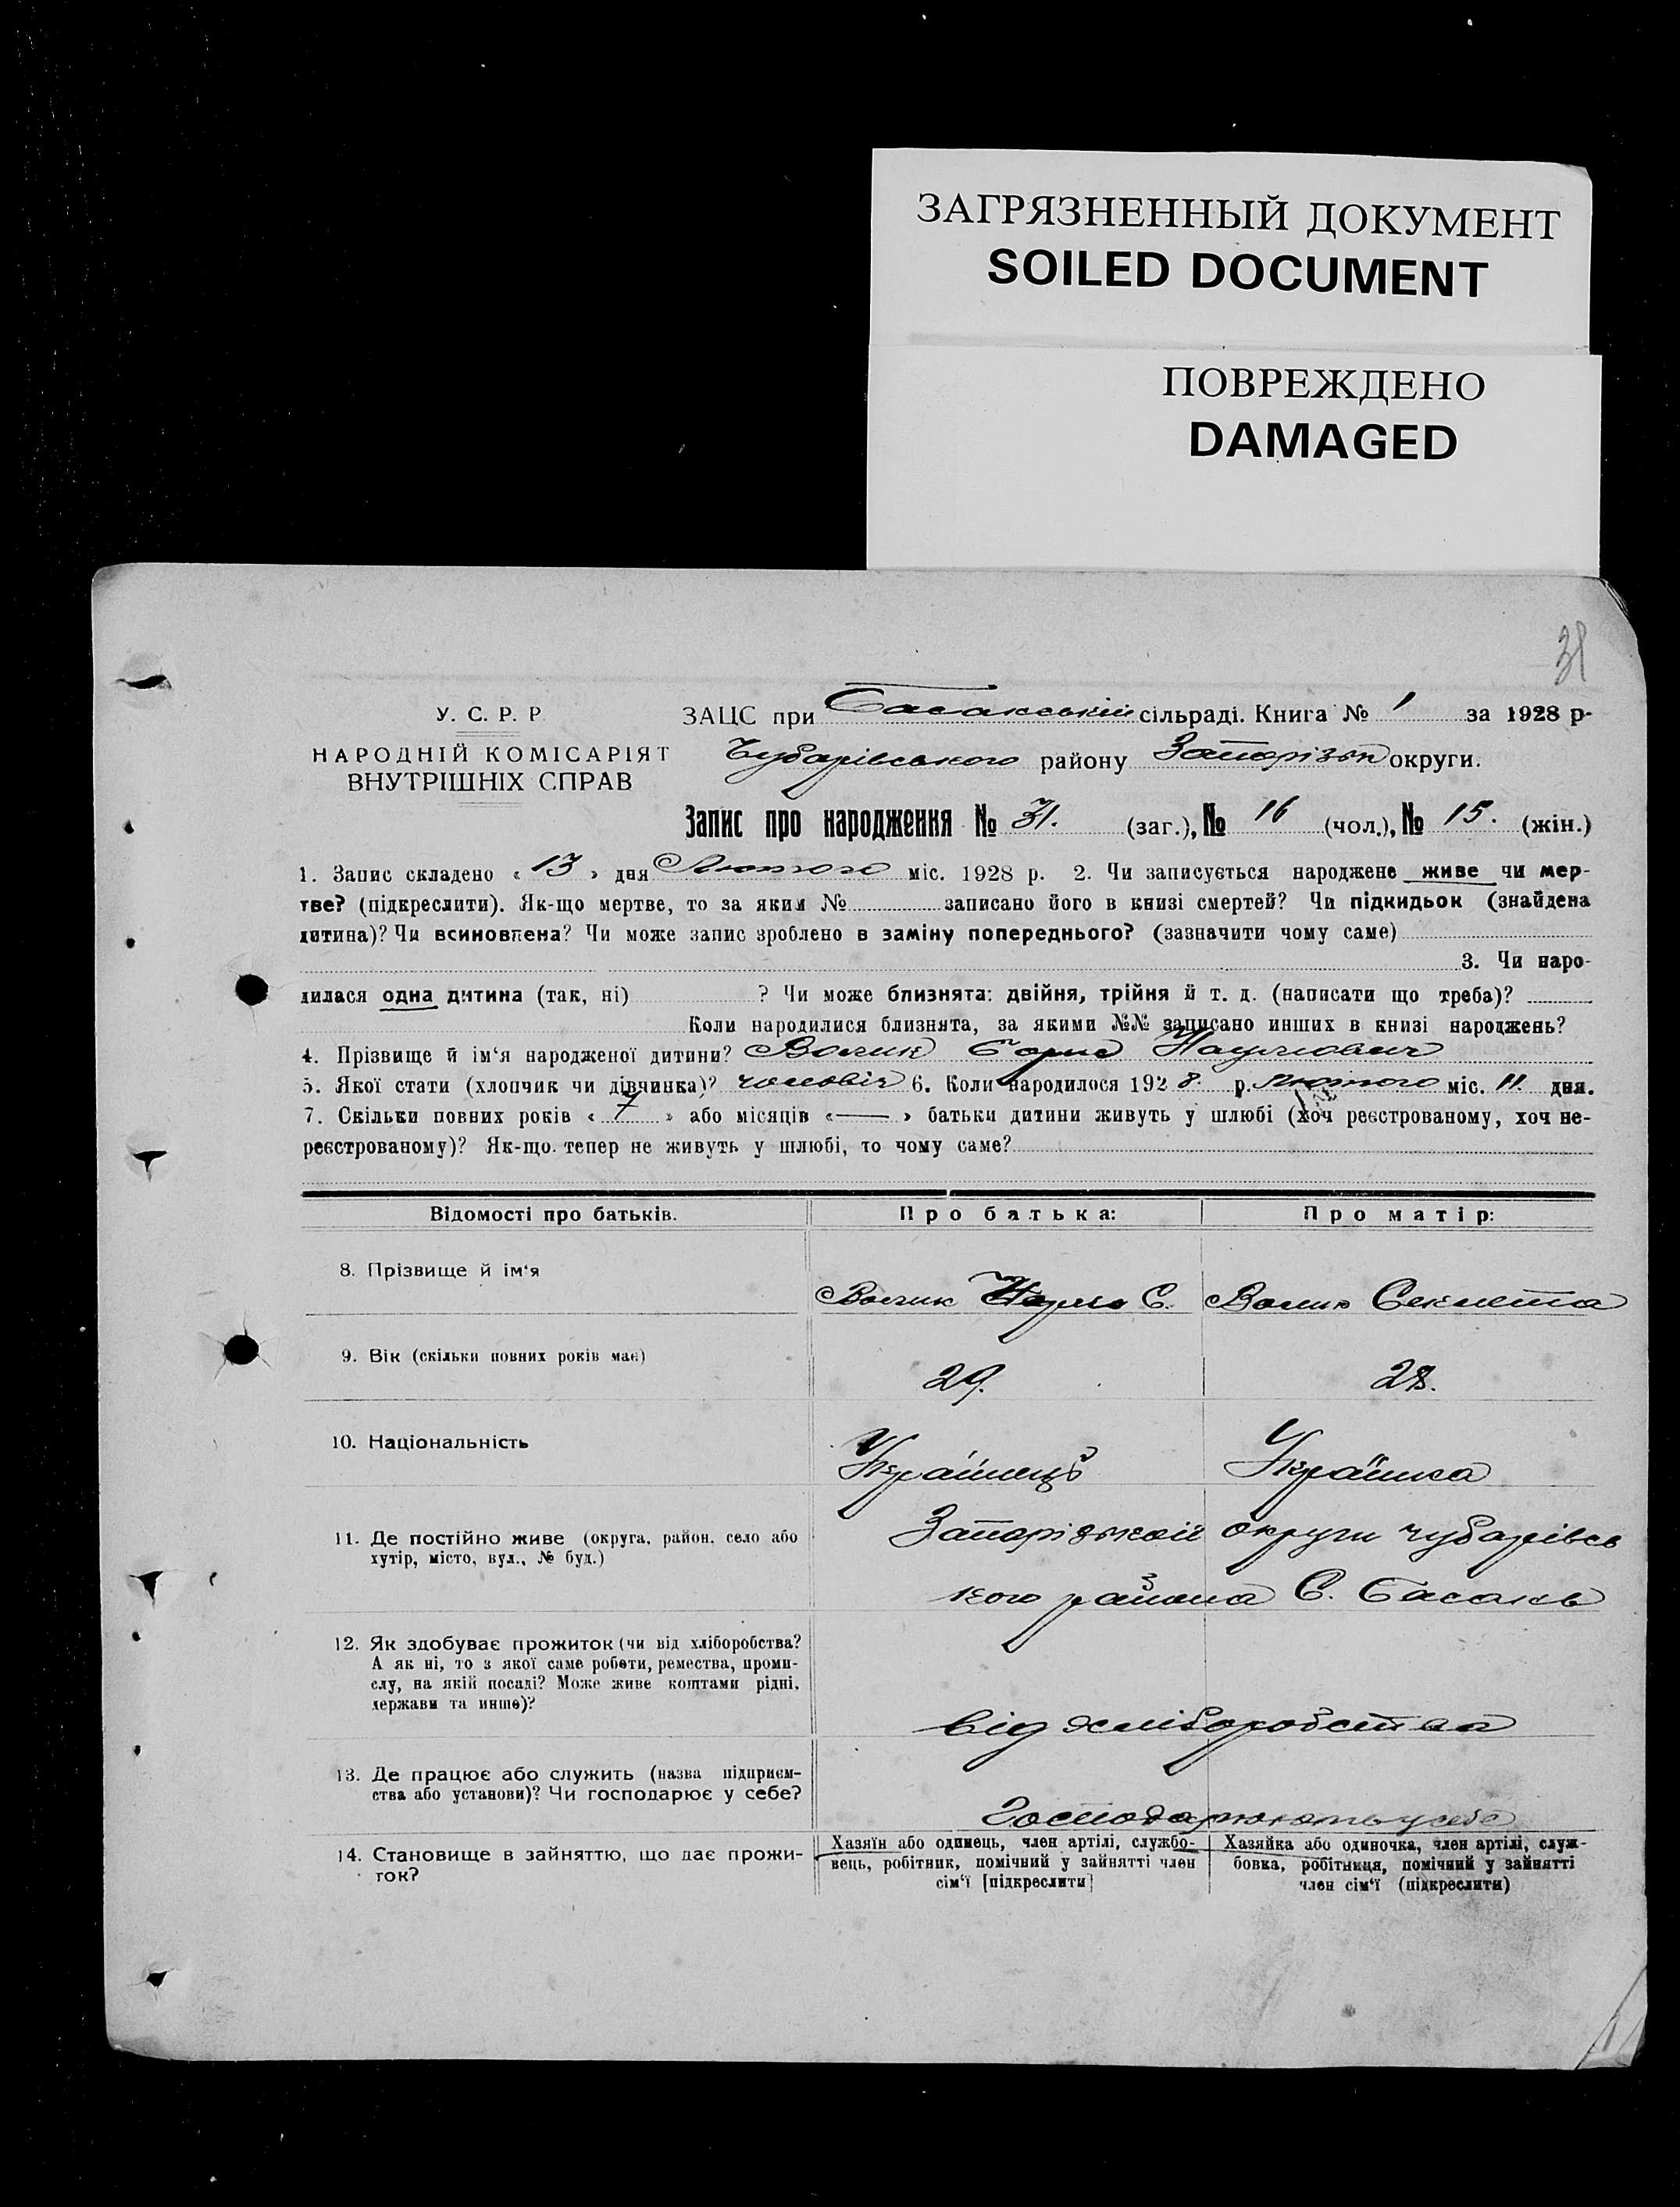 ЗАГРЯЗНЕННЫЙ ДОКУМЕНТ
SOILED DOCUMENT
ПОВРЕЖДЕНО
DAMAGED
31
У. С. Р. Р.
НАРОДНІЙ КОМІСАРІЯТ
ВНУТРІШНІХ СПРАВ
ЗАЦС при Басанський сільраді. Книга № 1 за 1928 р.
Чубарівського району Запорізьк округи.
Запис про народження № 31. (заг.), № 16 (чол.), № 15. (жін.)
1. Запис складено « 13 » дня Лютого міс. 1928 р. 2. Чи записується народжене живе чи мер-
тве? (підкреслити). Як-що мертве, то за яким № записано його в книзі смертей? Чи підкидьок (знайдена
дитина)? Чи всиновлена? Чи може запис зроблено в заміну попереднього? (зазначити чому саме)
3. Чи наро-
дилася одна дитина (так, ні) ? Чи може близнята: двійня, трійня й т. д. (написати що треба)?
Коли народилися близнята, за якими №№ записано инших в книзі народжень?
4. Прізвище й ім‘я народженої дитини? Волик Борис Наумович
5. Якої стати (хлопчик чи дівчинка)? чоловіч 6. Коли народилося 192 8. р. Лютого міс. 11. дня.
7. Скільки повних років « 7 » або місяців « — » батьки дитини живуть у шлюбі (хоч реєстрованому, хоч не-
реєстрованому)? Як-що тепер не живуть у шлюбі, то чому саме?
Відомості про батьків. Про батька: Про матір:
8. Прізвище й ім‘я
Волик Наум С. Волик
9. Вік (скільки повних років має)
29. 28.
10. Національність
Українець Українка
11. Де постійно живе (округа, район, село або
хутір, місто, вул., № буд.)
Запорізькоії округи чубарівсь
кого района С. Басань
12. Як здобуває прожиток (чи від хліборобства?
А як ні, то з якої саме роботи, ремества, проми-
слу, на якій посаді? Може живе коштами рідні,
держави та инше)?
від хліборобства
13. Де працює або служить (назва підприєм-
ства або установи)? Чи господарює у себе?
Господарюють у себе
14. Становище в зайняттю, що дає прожи-
ток?
Хазяїн або одинець, член артілі, службо-
вець, робітник, помічний у зайнятті член
сім‘ї [підкреслити]
Хазяйка або одиночка, член артілі, служ-
бовка, робітниця, помічний у зайнятті
член сім‘ї (підкреслити)